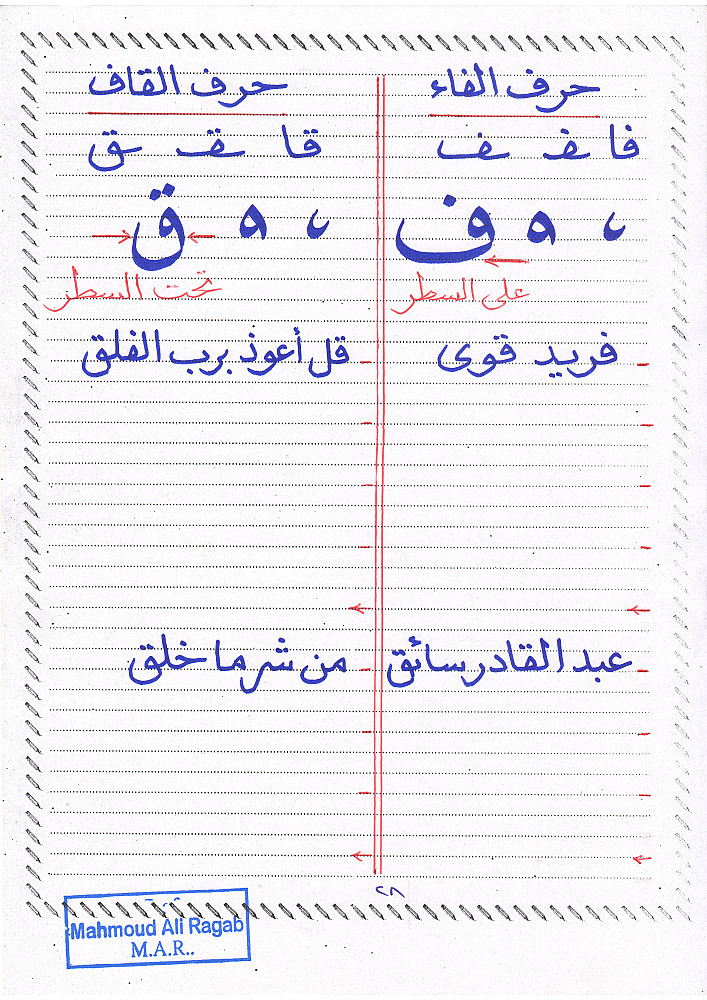 حرف الفاء
فا ـفـ ـف
ف
على السطر
فريد قوى
عبد القادر سائق
حرف القاف
قا ـقـ ـق
ق
تحت السطر
قل أعوذ برب الفلق
من شر ما خلق
Mahmoud Ali Ragab
M.A.R..